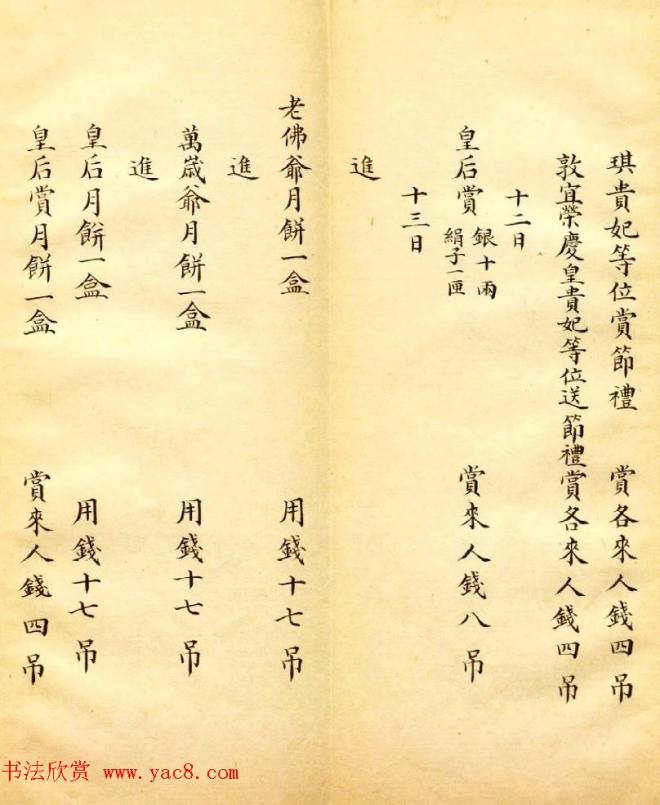 琪貴妃等位賞節禮　賞各來人錢四吊
敦宜榮慶皇貴妃等位送節禮賞各來人錢四吊
十二日
皇后賞　銀十兩　絹子一匣　賞來人錢八吊
十三日
進
老佛爺月餅一盒　用錢十七吊
進
萬歲爺月餅一盒　用錢十七吊
進
皇后月餅一盒　用錢十七吊
皇后賞月餅一盒　賞來人錢四吊
书法欣赏 www.yac8.com